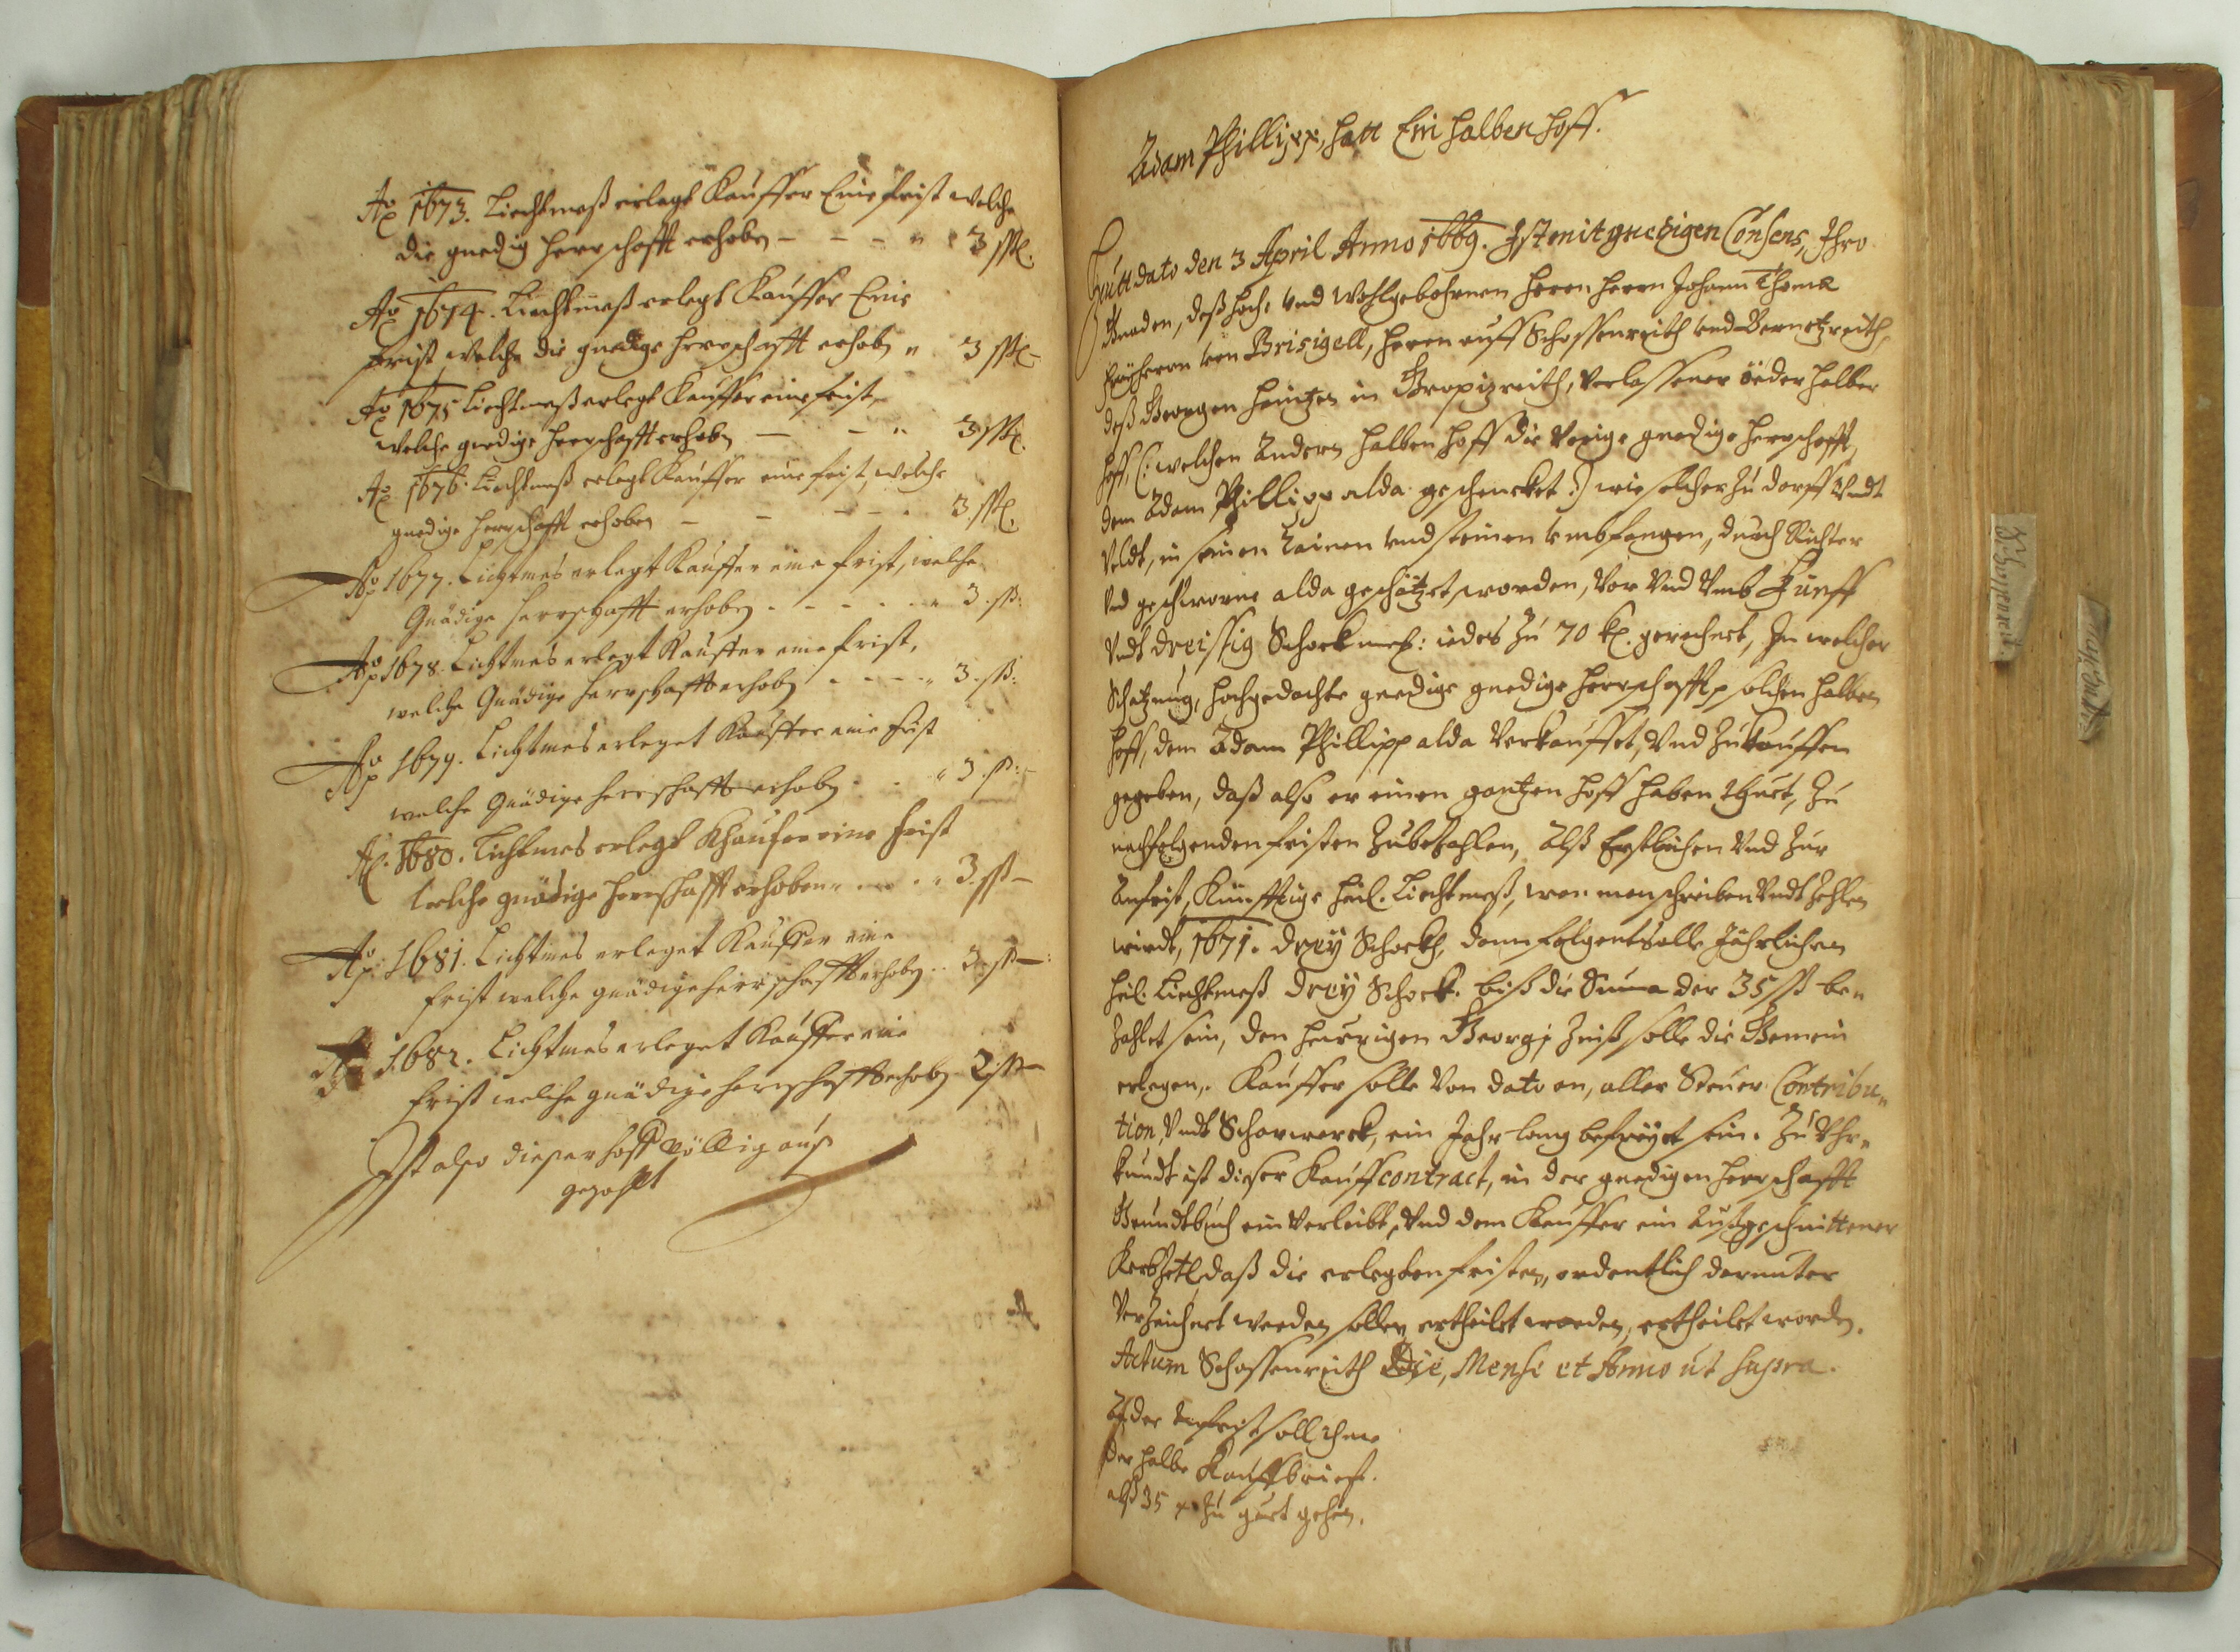 Ao 1673. Liechtmeß erlegt Kauffer Eine frist welche
die gnedig Herrschafft erhoben - - - " 3 ßl.
Ao 1674. Liechtmeß erlegt Kauffer Eine
frist welche die gnedige Herrschafft erhobn " 3 ßl -
Ao 1675 Liechtmeß erlegt Kauffer eine frist,
welche gnedige Herrschafft erhobn - - " 3 ßl.
Ao 1676. Liechtmeß erlegt Kauffer eine frist, welche
gnedige Herrschafft erhoben - - - - 3 ßl.
Ao 1677. Lichtmes erlegt Kauffer eine frist, welche
Gnädige Herrschafft erhoben . - - - . " 3. ß:
Ao 1678. Lichtmes erlegt Kauffer eine frist,
welche Gnädige Herrschafft erhobn . - - - " 3. ß:
Ao 1679. Lichtmes erleget Kauffer eine frist
welche Gnädige Herrschafft erhobn . . " 3. ß: -
Ao. 1680. Lichtmes erlegt Khaufer eine frist
welche gnädige Herrschafft erhoben . . . " 3. ß -
Ao. 1681. Lichtmes erleget Kauffer eine
frist welche gnädige Herrschafft erhobn .. 3. ß -:
Ao 1682. Lichtmes erleget Kauffer eine
frist welche gnädige Herrschafft erhobn 2. ß -
Ist also dieser Hoff völlig aus
gezahlt
Adam Phillipp, hatt Ein halben Hoff.
Heutt dato den 3 April Anno 1669. Ist mit gnedigen Consens, Ihro
Gnaden, deß Hoch: vnd Wohlgebohrnen Herrn Herrn Johann Thomæ
Freyherrn von Brisigell, Herrn auff Schossenreith vnd Bernetzreith,
deß Georgen Heintzen in Gropizreith, verlassener öeder halber
Hoff, (: welchen Andern halben Hoff die vorige gnedige Herrschafft
dem Adam Phillipp alda geschencket :) wie solcher zu dorff vndt
Veldt, in seinen Rainen vnd steinen vmbfangen, durch Richter
vnd geschworne alda geschätzet worden, vor vnd vmb Fünff
vndt dreissig Schock: iedes zu 70 kr. gerechnet, In welcher
Schatzung, hochgedachte gnedige gnedige Herrschafft, solchen halben
Hoff, dem Adam Phillipp alda verkauffet, vnd zukauffen
gegeben, daß also er einen gantzen Hoff haben thuet, zu
nachfolgenden fristen zubezahlen, Alß Erstlichen vnd zur
Anfrist, Künfftige Heil. Liechtmeß, wan man schreiben vndt zehlen
wirdt, 1671. drey Schockh, dann folgents alle Jährlichen
Heil. Liechtmeß drey Schock. biß die Suma der 35 ß be„
zahlet sein, den heurigen Georgi Zinß solle die Gemein
erlegen, Kauffer solle von dato an, aller Steuer Contribu„
tion, vndt Scharwerck, ein Jahr lang befreyet sein. Zu Vhr„
kundt ist dieser Kauffcontract, in der gnedigen Herrschafft
Grundtbuch ein verleibt, vnd dem Kauffer ein Außgeschnittener
Kerbzetl daß die erlegten fristen, ordentlich darunter
verzeichnet werden sollen ertheilet worden, ertheilet worden.
Actum Schossenreith Die, Mense et Anno ut supra.
der Anfrist soll ihme
der halbe Kauffbrieff.
alß 35 x zu guet gehen.